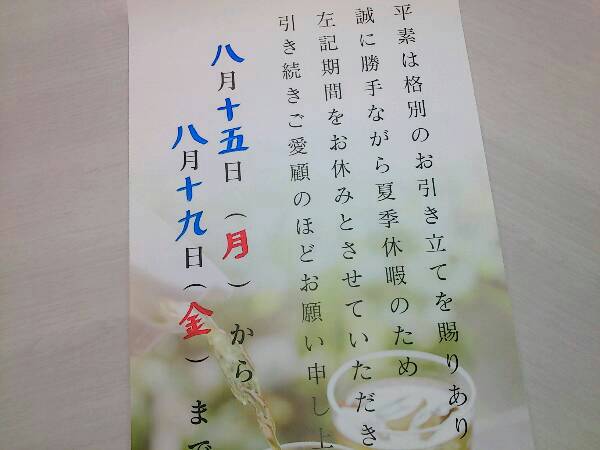 平素は格別のお引き立てを賜りあり
誠に勝手ながら夏季休暇のため
左記期間をお休みとさせていただき
引き続きご愛顧のほどお願い申し上
八月十五日（月）から
八月十九日（金）まで